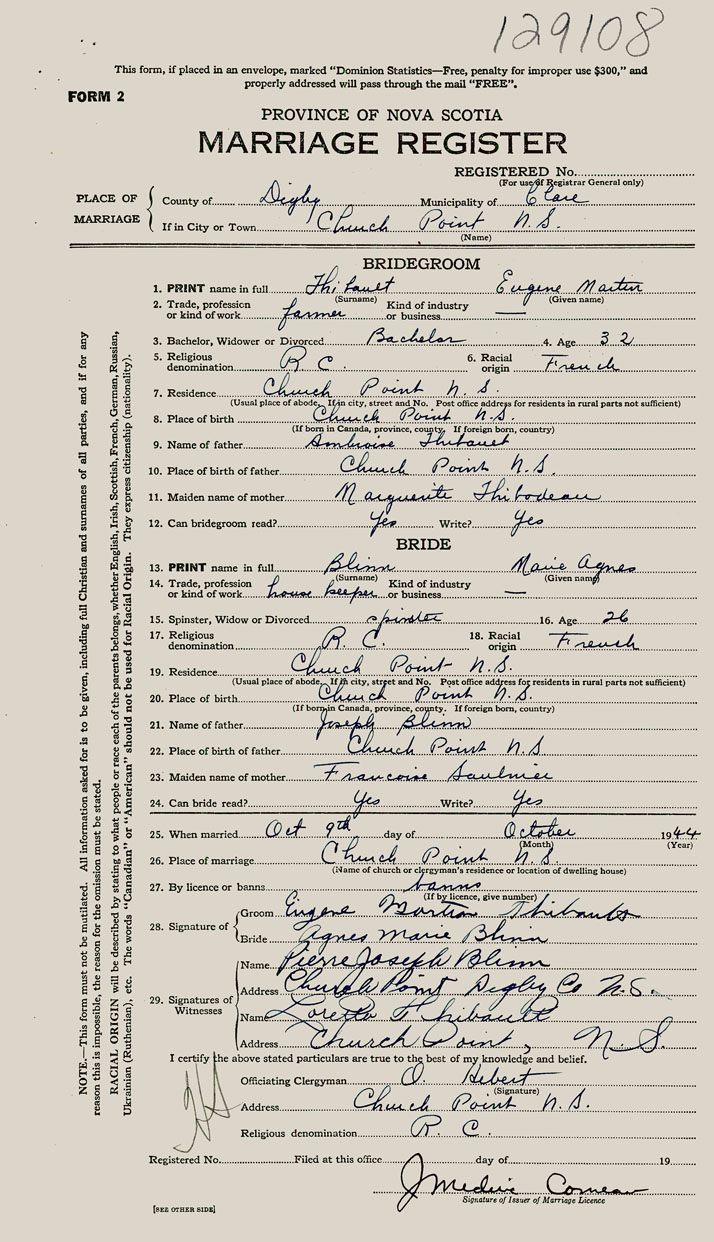 129108
This form, if placed in an envelope, marked "Dominion Statistics—Free, penalty for improper use $300," and
properly addressed will pass through the mail "FREE".
FORM 2
PROVINCE OF NOVA SCOTIA
MARRIAGE REGISTER
REGISTERED No.
(For use of Registrar General only)
PLACE OF MARRIAGE
County of Digby Municipality of Clare
If in City or Town Church Point N.S.
(Name)
BRIDEGROOM
1. PRINT name in full Thibault Eugene Martin
(Surname) (Given name)
2. Trade, profession or kind of work farmer Kind of industry or business —
3. Bachelor, Widower or Divorced Bachelor 4. Age 32
5. Religious denomination R C. 6. Racial origin French
7. Residence Church Point N.S.
(Usual place of abode. If in city, street and No. Post office address for residents in rural parts not sufficient)
8. Place of birth Church Point N.S.
(If born in Canada, province, county. If foreign born, country)
9. Name of father Ambroise Thibault
10. Place of birth of father Church Point N.S.
11. Maiden name of mother Marguerite Thibodeau
12. Can bridegroom read? Yes Write? Yes
BRIDE
13. PRINT name in full Blinn Marie Agnes
(Surname) (Given name)
14. Trade, profession or kind of work house keeper Kind of industry or business —
15. Spinster, Widow or Divorced spinster 16. Age 26
17. Religious denomination R. C. 18. Racial origin French
19. Residence Church Point N.S.
(Usual place of abode. If in city, street and No. Post office address for residents in rural parts not sufficient)
20. Place of birth Church Point N.S.
(If born in Canada, province, county. If foreign born, country)
21. Name of father Joseph Blinn
22. Place of birth of father Church Point N.S
23. Maiden name of mother Francoise Saulnier
24. Can bride read? Yes Write? Yes
25. When married Oct 9th day of October 1944
(Month) (Year)
26. Place of marriage Church Point N.S.
(Name of church or clergyman's residence or location of dwelling house)
27. By licence or banns banns
(If by licence, give number)
28. Signature of
Groom Eugene Martin Thibault
Bride Agnes Marie Blinn
29. Signatures of Witnesses
Name Pierre Joseph Blinn
Address Church Point Digby Co N.S.
Name Loretta Thibault
Address Church Point, N.S.
I certify the above stated particulars are true to the best of my knowledge and belief.
Officiating Clergyman O. Hebert
(Signature)
Address Church Point N.S.
Religious denomination R. C.
Registered No. Filed at this office day of 19
J Medive Comeau
Signature of Issuer of Marriage Licence
[SEE OTHER SIDE]
NOTE.—This form must not be mutilated. All information asked for is to be given, including full Christian and surnames of all parties, and if for any
reason this is impossible, the reason for the omission must be stated.
RACIAL ORIGIN will be described by stating to what people or race each of the parents belongs, whether English, Irish, Scottish, French, German, Russian,
Ukrainian (Ruthenian), etc. The words "Canadian" or "American" should not be used for Racial Origin. They express citizenship (nationality).